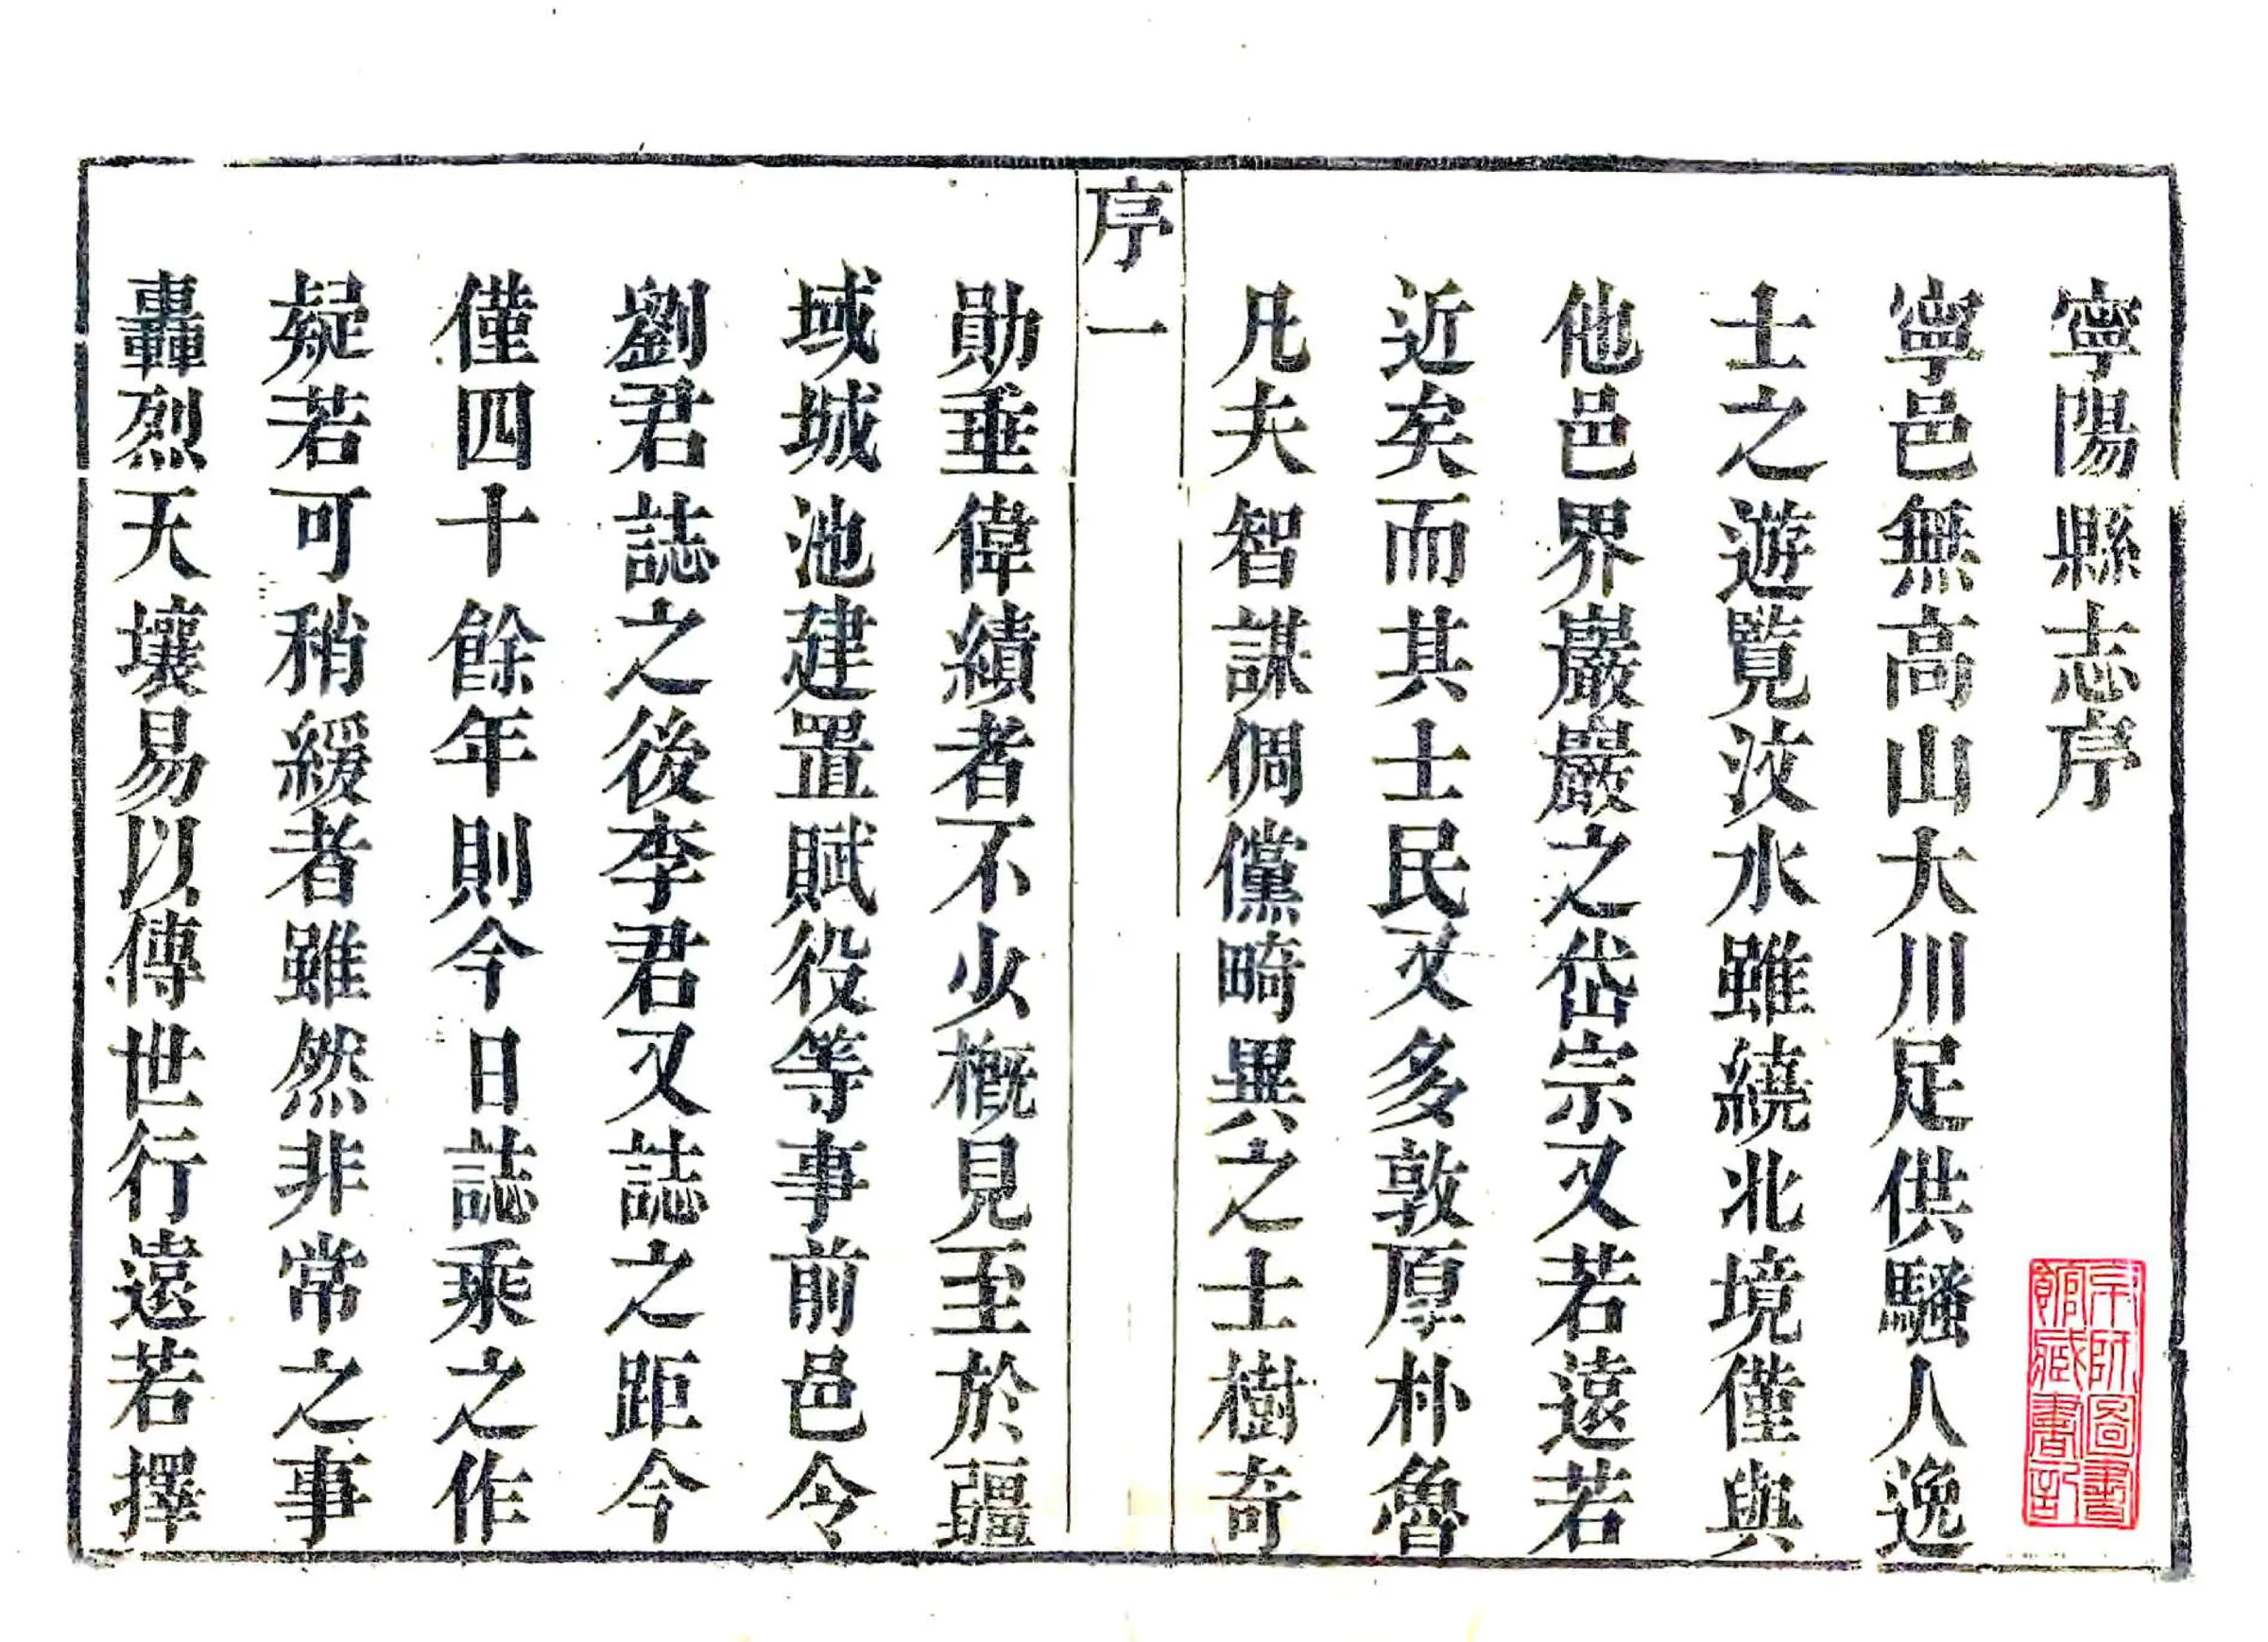 寧陽縣志序
寧邑無高山大川足供騷人逸
士之遊覽汶水雖繞北境僅與
他邑界巖巖之岱宗又若遠若
近矣而其士民又多敦厚朴魯
凡夫智謀倜儻畸異之士樹奇
序一
勛垂偉績者不少概見至於疆
域城池建置賦役等事前邑令
劉君誌之後李君又誌之距今
僅四十餘年則今日誌乘之作
疑若可稍緩者雖然非常之事
轟烈天壤易以傳世行遠若擇